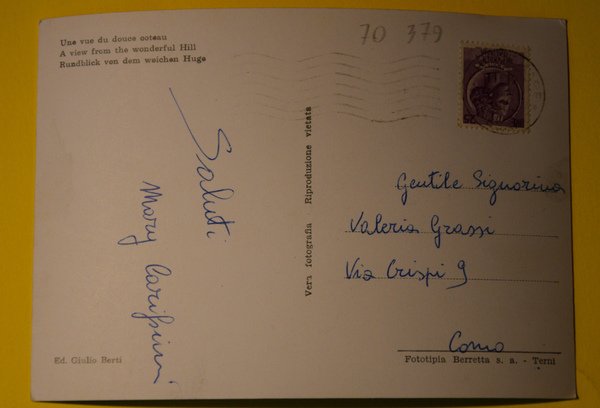 Une vue du douce coteau
A view from the wonderful Hill
Rundblick von dem weichen Huge
70 379
Saluti
Mary
Vera fotografia Riproduzione vietata
Gentile Signorina
Valeria Grassi
Via Crispi 9
Como
Ed. Giulio Berti
Fototipia Berretta s. a. - Terni